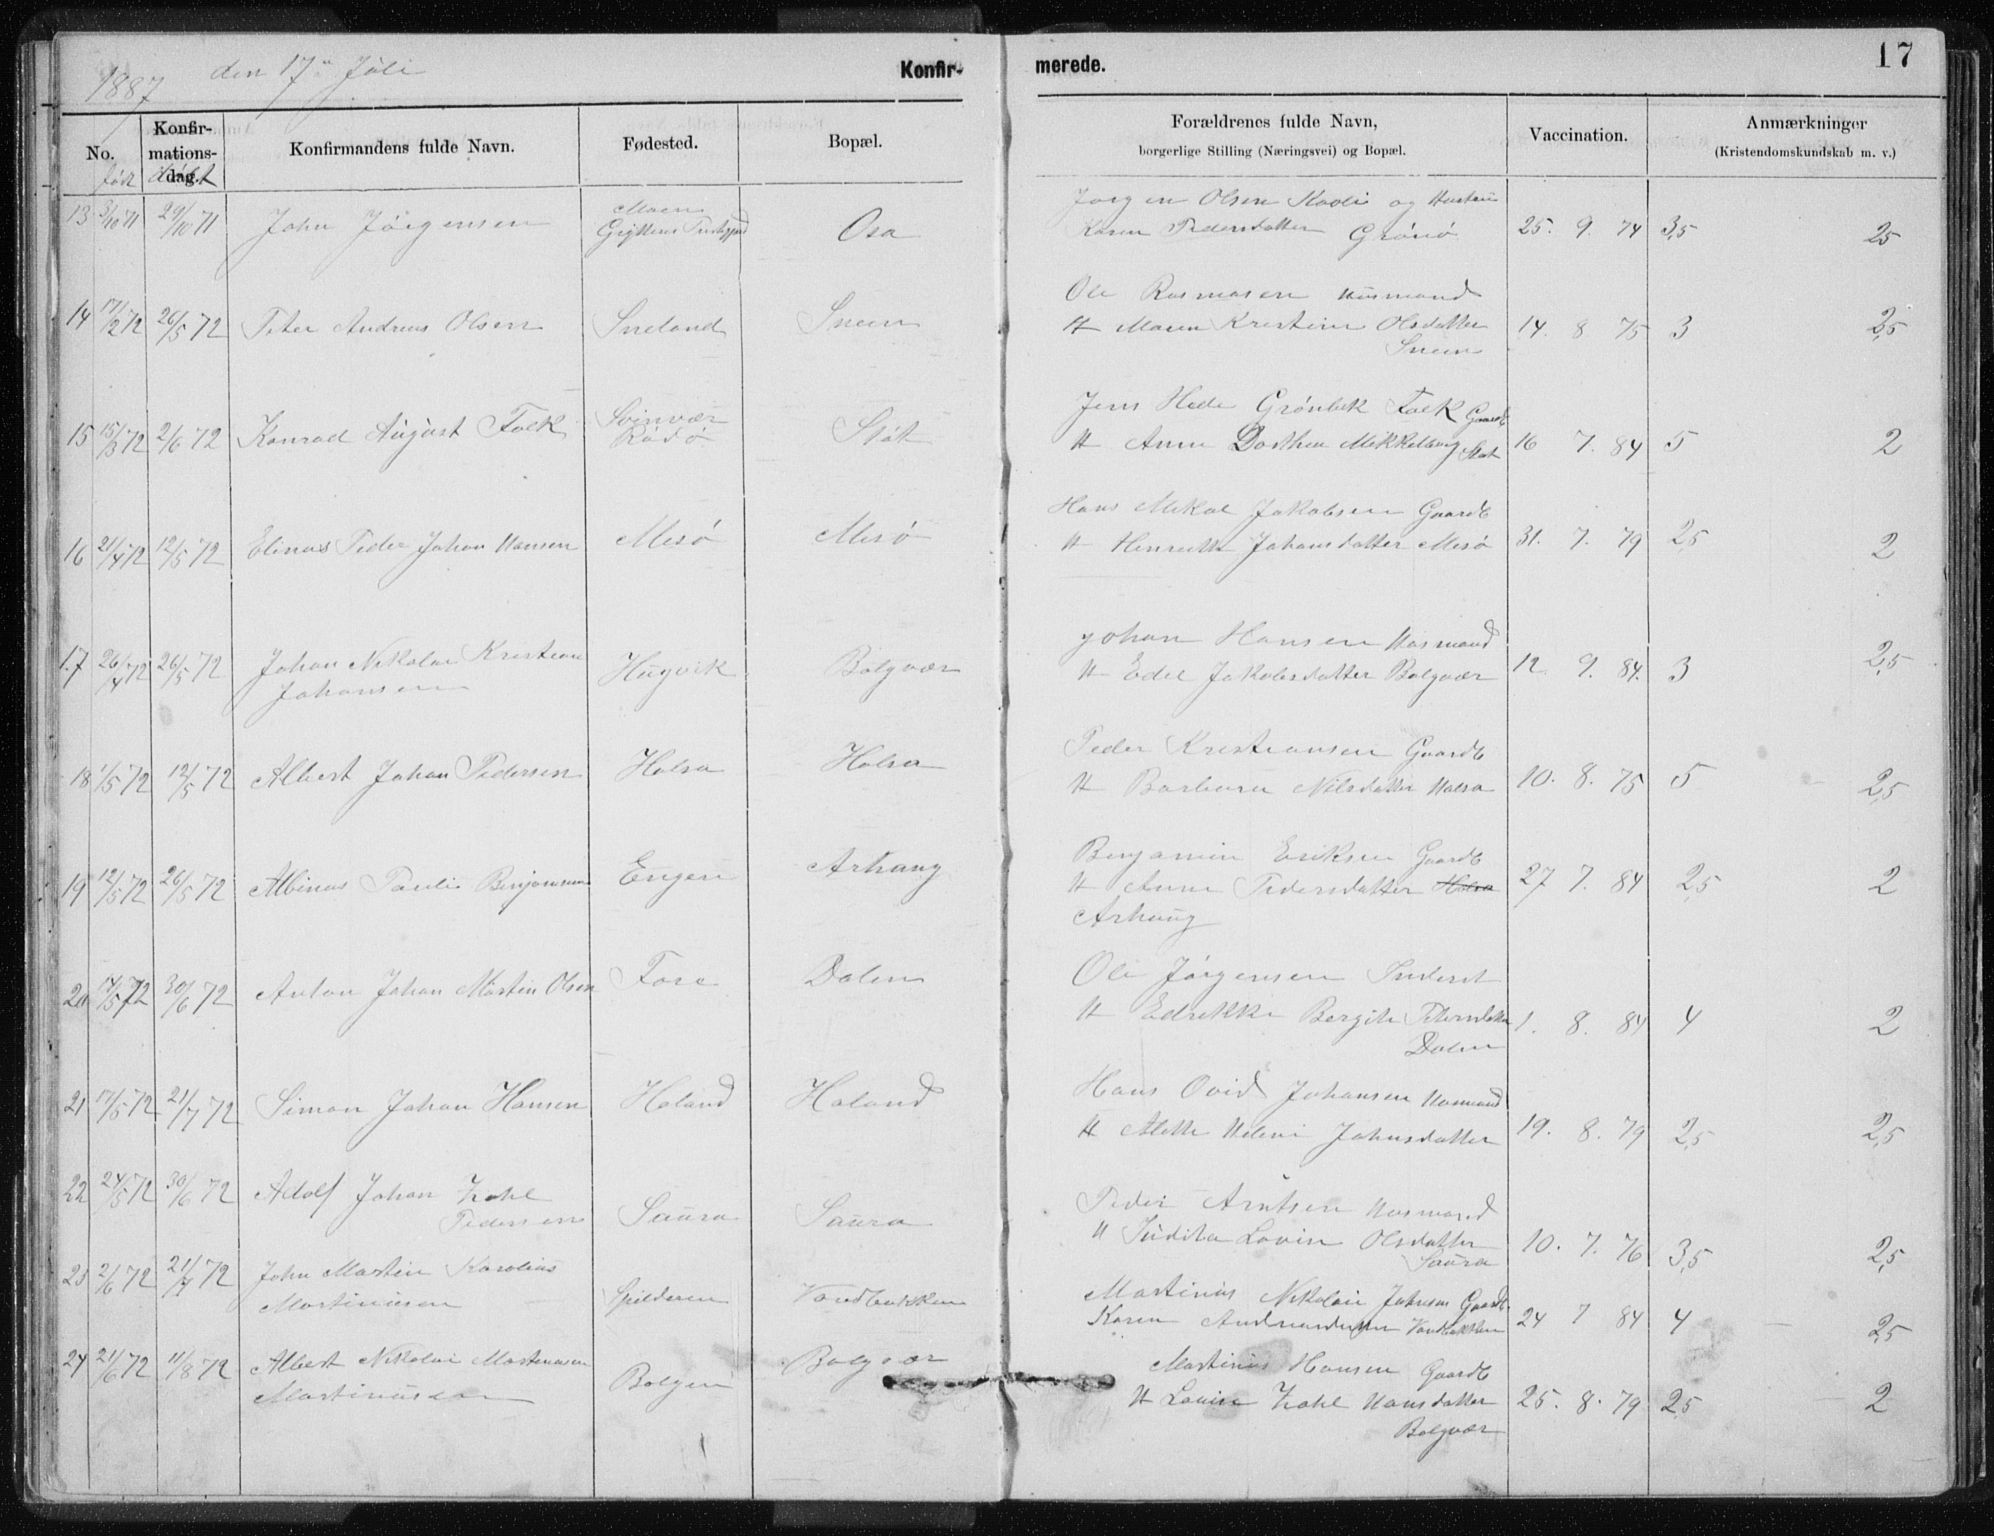 1887 den 17de Júli
Konfir- merede. 17
No. Konfir-mations-dag. Konfirmandens fulde Navn. Fødested. Bopæl. Forældrenes fulde Navn, Vaccination. Anmærkninger
født døbt borgerlige Stilling (Næringsvei) og Bopæl. (Kristendomskundskab m. v.)
Moen Jørgen Olsen og Hustru
13 3/10 71 29/10 71 John Jörgensen Osa Karen Pedersdatter Grönö 25. 9. 74 3,5 2,5
Ole Rasmusen Husmand
14 17/2 72 26/5 72 Peter Andreas Olsen Sneland Sneen H Maren Kristine Olsdatter 14. 8 75 3 2,5
Sneen
Svinvær Jens Hede Grönbek Falk Gaardb
15 15/3 72 2/6 72 Konrad Aúgúst Falk Rödö Stöt H Anne Dorthea Mikkelborg Støt 16 7. 84 5 2
Hans Mikal Jakobsen Gaardb
16 21/4 72 12/5 72 Elinas Peder Johan Hansen Mesö Mesö H Henrikke Johansdatter Mesö 31. 7. 79 2,5 2
Johan Hansen Husmand
17 26/4 72 26/5 72 Johan Nikolai Kristian Húgvik Bolgvær H Edel Jakobsdatter Bolgvær 12. 9. 84. 3 2,5
Johansen
Peder Kristiansen Gaardb
18 1/5 72 12/5 72 Albert Johan Pedersen Halsa Halsa H Barbara Nilsdatter Halsa 10. 8. 75 5 2,5
Benjamin Eriksen Gaardb
19 12/5 72 26/5 72 Albinus Paúli Benjaminsen Engen Arhaug H Anne Pedersdatter Halsa 27 7. 84 2,5 2
Arhaúg
Ole Jörgensen Inderst
20 17/5 72 30/6 72 Anton Johan Martin Olsen Fore Dalen H Edrikke Bergite Petersdatter 1. 8. 84 4 2
Dalen
Hans Ovid Johansen Husmand
21 17/5 72 21/7 72 Simon Johan Hansen Haland Haland H Alette Helene Johnsdatter 19. 8. 79 2,5 2,5
22 24/5 72 30/6 72 Adolf Johan Zahl Peder Arntsen Husmand
Pedersen Saúra Saúra H Júdita Lovise Olsdatter 10. 7. 76 3,5 2,5
Saúra
23 2/6 72 21/7 72 John Martin Karolius Martinús Nikolai Johnsen Gaardb.
Martinússen Spilderen Vandbakken Karen Vandbakken 24 7 84 4 2,5
24 21/6 72 11/8 72 Albert Nikolai Bolgvær Martinús Hansen Gaardb
Martinússen Bolgen H Lovise Zahl Hansdatter 25. 8. 79 2,5 2
Bolgvær